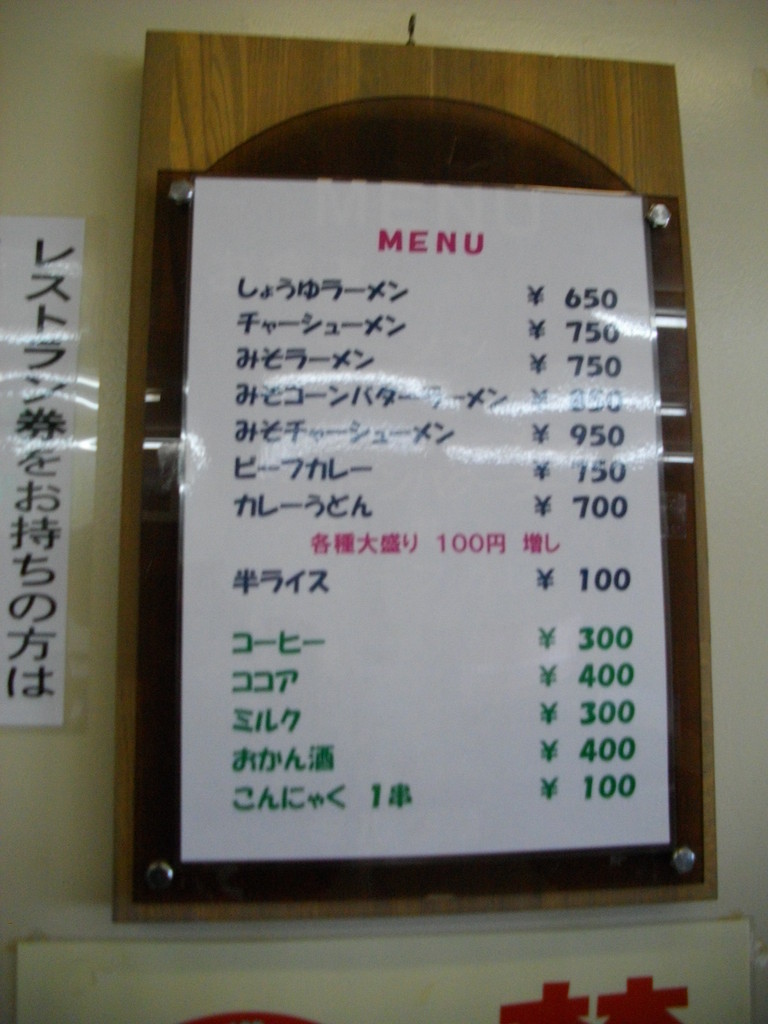 MENU
しょうゆラーメン ¥ 650
チャーシューメン ¥ 750
みそラーメン ¥ 750
みそコーンバターラーメン ¥
みそチャーシューメン ¥ 950
ビーフカレー ¥ 750
カレーうどん ¥ 700
各種大盛り 100円 増し
半ライス ¥ 100
コーヒー ¥ 300
ココア ¥ 400
ミルク ¥ 300
おかん酒 ¥ 400
こんにゃく 1串 ¥ 100
レストラン券をお持ちの方は